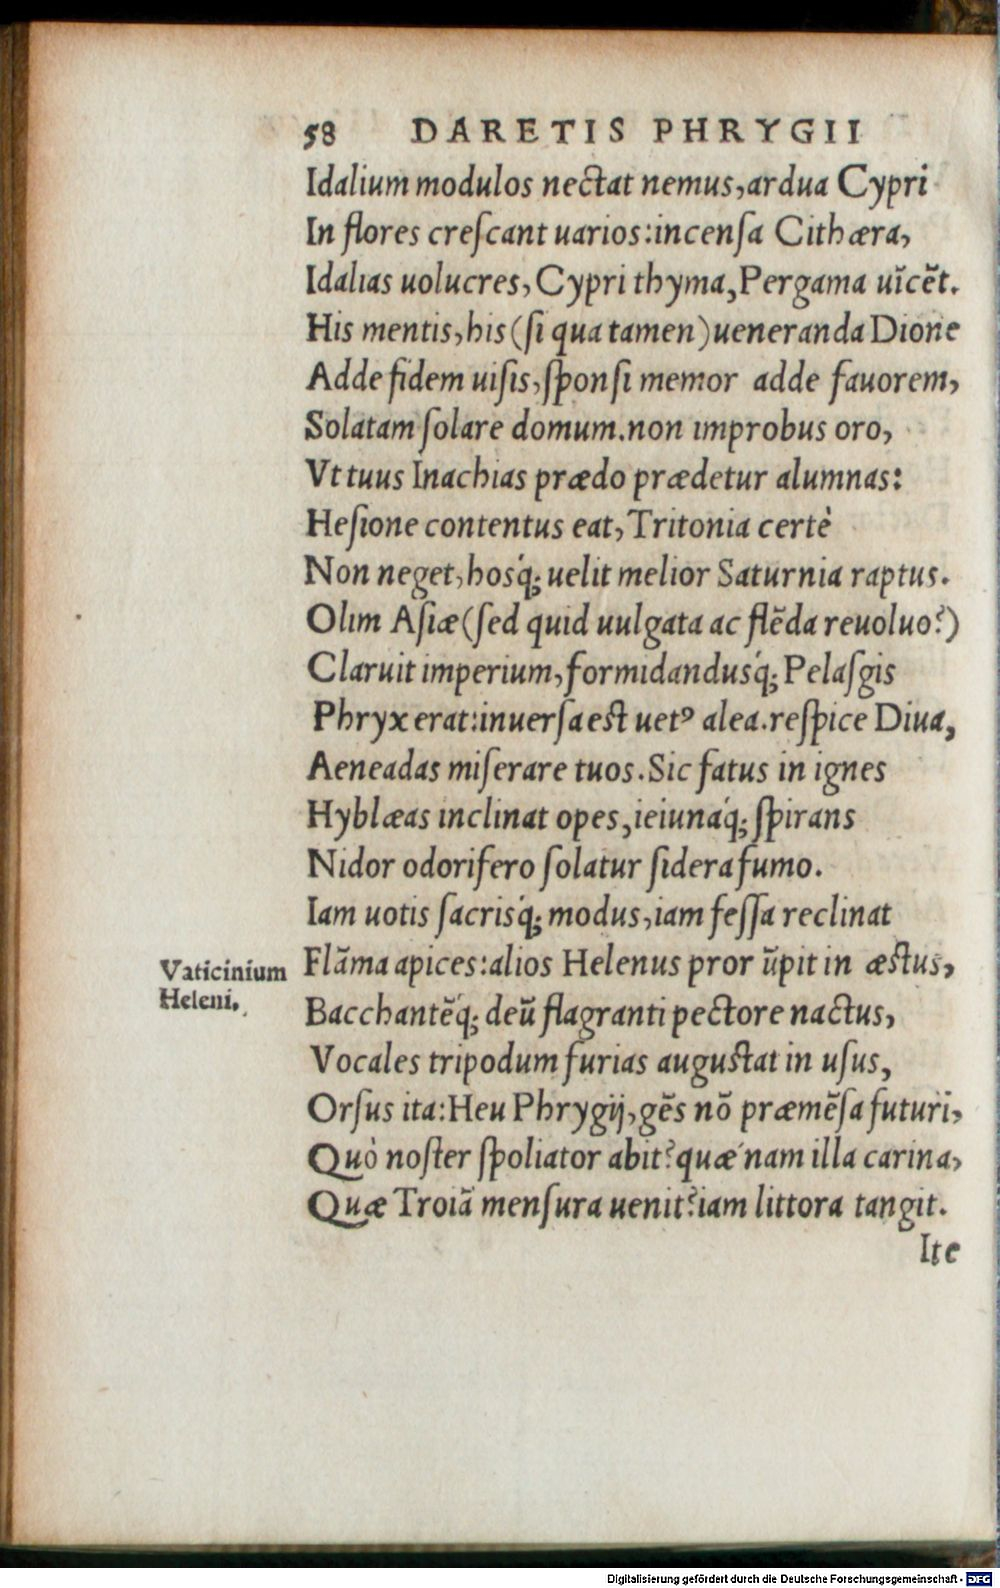 58 DARETIS PHRYGII
Idalium modulos nectat nemus, ardua Cypri
In flores creſcant uarios: incenſa Cithæra,
Idalias uolucres, Cypri thyma, Pergama uīcēt.
His mentis, his (ſi qua tamen) ueneranda Dione
Adde fidem uiſis, ſponſi memor adde fauorem,
Solatam ſolare domum. non improbus oro,
Vt tuus Inachias prædo prædetur alumnas:
Heſione contentus eat, Tritonia certè
Non neget, hosq́; uelit melior Saturnia raptus.
Olim Aſiæ (ſed quid uulgata ac flēda reuoluo?)
Claruit imperium, formidandusq́; Pelaſgis
Phryx erat: inuerſa est uetꝰ alea. reſpice Diua,
Aeneadas miſerare tuos. Sic fatus in ignes
Hyblæas inclinat opes, ieiunaq́; ſpirans
Nidor odorifero ſolatur ſidera fumo.
Iam uotis ſacrisq́; modus, iam feſſa reclinat
Vaticinium Heleni.
Flāma apices: alios Helenus pror ūpit in æstus,
Bacchantēq́; deū flagranti pectore nactus,
Vocales tripodum furias augustat in uſus,
Orſus ita: Heu Phrygij, gēs nō præmēſa futuri,
Quò noſter ſpoliator abit? quæ nam illa carina,
Quæ Troiā menſura uenit? iam littora tangit.
Ite
Digitalisierung gefördert durch die Deutsche Forschungsgemeinschaft - DFG